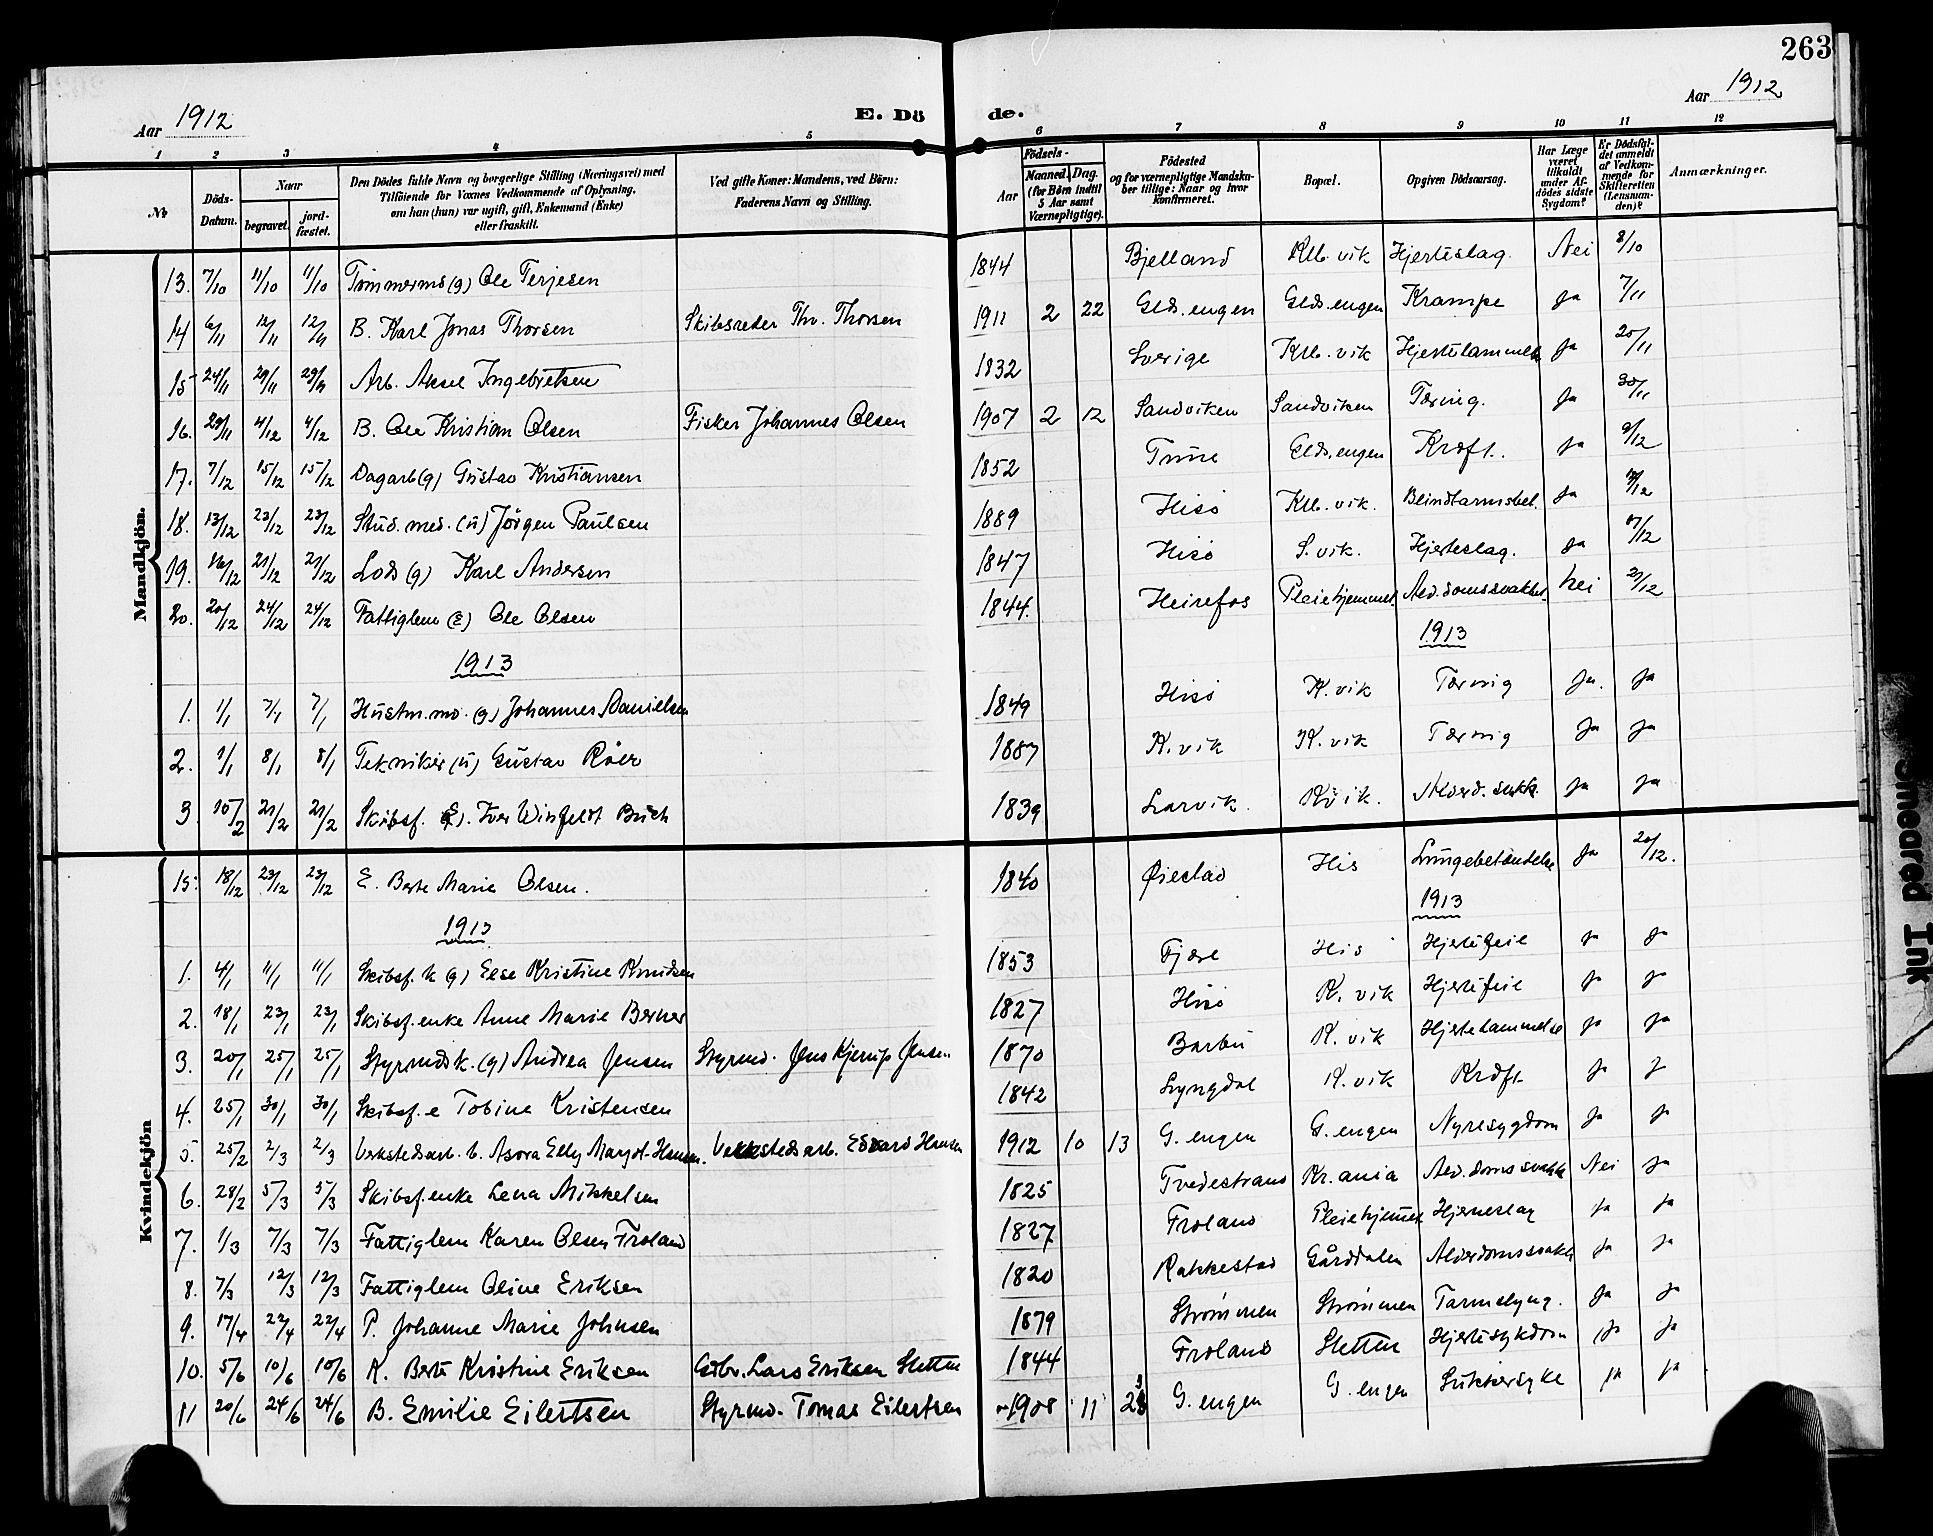 263
Aar 1912 E. Dö de. Aar 1912
1 2 3 4 5 6 7 8 9 10 11 12
№ Döds-Datum. Naar begravet. jord-fæstet. Den Dödes fulde Navn og borgerlige Stilling (Næringsvei) med Tilföiende for Voxnes Vedkommende af Oplysning, om han (hun) var ugift, gift, Enkemand (Enke) eller fraskilt. Ved gifte Koner: Mandens, ved Börn: Faderens Navn og Stilling. Födsels- Aar Maaned. Dag. (for Börn indtil 5 Aar samt Værnepligtige). Födested og for værnepligtige Mandskaber tillige: Naar og hvor konfirmeret. Bopæl. Opgiven Dödsaarsag. Har Læge været tilkaldt under Afdödes sidste Sygdom? Er Dödsfaldet anmeldt af Vedkommende for Skifteretten (Lensmanden)? Anmærkninger.
Mandkjön.
13. 7/10 11/10 11/10 Tömmermd (g) Ole Terjesen 1844 Bjelland Klb. vik Hjerteslag. Nei 8/10
14 6/11 12/11 12/11 B. Karl Jonas Thorsen Skibsreder Thv. Thorsen 1911 2 22 Glds. engen Glds. engen Krampe ja 7/11
15 24/11 29/11 29/11 Arb. Aksel Ingebretsen 1832 Sverige Klb. vik Hjertelammelse ja 25/11
16. 29/11 4/12 4/12 B. Ole Kristian Olsen Fisker Johannes Olsen 1907 2 12 Sandviken Sandviken Tæring. ja 30/11
17. 7/12 15/12 15/12 Dagarb (g) Gustav Kristiansen 1852 Tune Glds. engen Kræft. ja 9/12
18. 13/12 23/12 23/12 Stud. med. (u) Jörgen Paulsen 1889 Hisö Klb. vik. Blindtarmsbet. ja
19. 16/12 21/12 21/12 Lods (g) Karl Andersen 1847 Hisö S. vik. Hjerteslag. ja 17/12
20. 20/12 24/12 24/12 Fattiglem (E) Ole Olsen 1844. Heirefos Pleiehjemmet. Alderdomssvakhet. Nei 21/12
1913 1913
1. 1/1 7/1 7/1 Hustm.md. (g) Johannes Danielsen 1849 Hisö K. vik Tæring ja. ja
2. 1/1 8/1 8/1 Tekniker (u) Gustav Röer 1887 K. vik K. vik Tæring ja ja
3. 10/2 21/2 21/2 Skibsf. E). Iver Winfeldt Buch 1839 Larvik. K. vik. Alderd. svkh. ja ja
Kvindekjön
15. 18/12 23/12 23/12 E. Berte Marie Olsen. 1840 Øiestad His Lungebetændelse ja 20/12.
1913 1913
1. 4/1 11/1 11/1 Skibsf. k (g) Else Kristine Knudsen 1853 Fjære His Hjertefeil ja ja
2. 18/1 23/1 23/1 Skibsf. enke Anne Marie Berner 1827 Hisö K. vik Hjertefeil ja ja
3. 20/1 25/1 25/1 Styrmds k. (g) Andrea Jensen Styrmd. Jens Kjerup Jensen 1870 Barbu K. vik Hjertelammelse ja ja
4. 25/1 30/1 30/1 Skibsf. e Tobine Kristensen 1842 Lyngdal K. vik Kræft ja j
5. 25/2 2/3 2/3 Verkstedsarb. b. Asora Elly Margot Hansen. Verkstedsarb. Edvard Hansen 1912 10 13 G. engen G. engen Nyresygdom ja ja
6. 28/2 5/3 5/3 Skibsf. enke Lena Mikkelsen 1825 Tvedestrand Kr. ania Ald. doms svakh Nei ja
7. 1/3 7/3 7/3 Fattiglem Karen Olsen Froland 1827 Froland Pleiehjemmet Hjerneslag ja ja
8. 7/3 12/3 12/3 Fattiglem Oline Eriksen 1820 Rakkestad Gårddalen Alderdomssvakh ja ja
9. 17/4 22/4 22/4 P. Johanne Marie Johnsen 1879 Strömmen Strömmen Tarmslyng. ja ja
10. 5/6 10/6 10/6 K. Berte Kristine Eriksen Gdbr. Lars Eriksen Sletten 1844 Froland Sletten Hjertesykdom ja ja
11 20/6 24/6 24/6 B. Emilie Eilertsen Styrmd. Tomas Eilertsen 1908 11 G. engen G. engen Sukkersyke ja ja
Smeared Ink